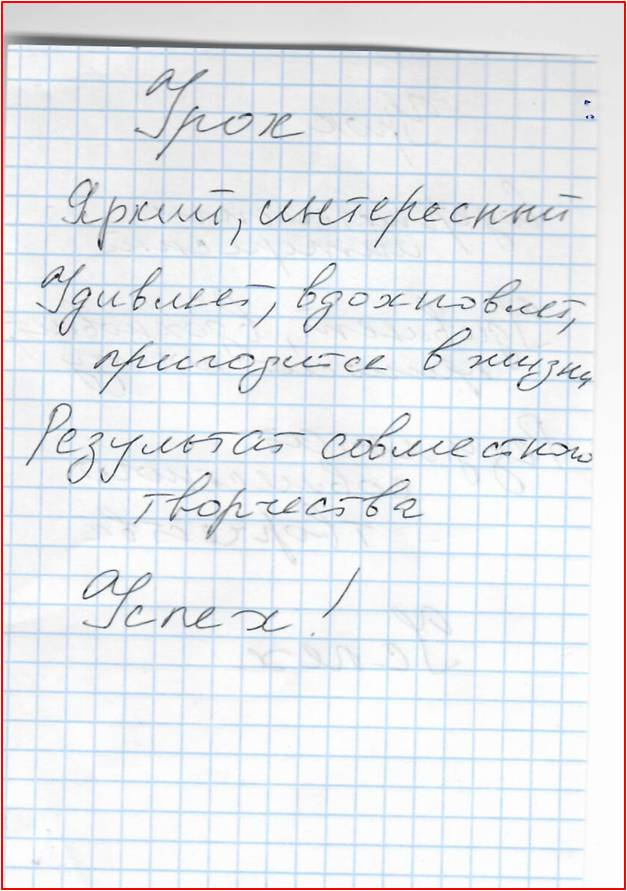 Урок
Яркий, интересный
Удивляет, вдохновляет,
пригодится в жизни
Результат совместного
творчества
Успех!